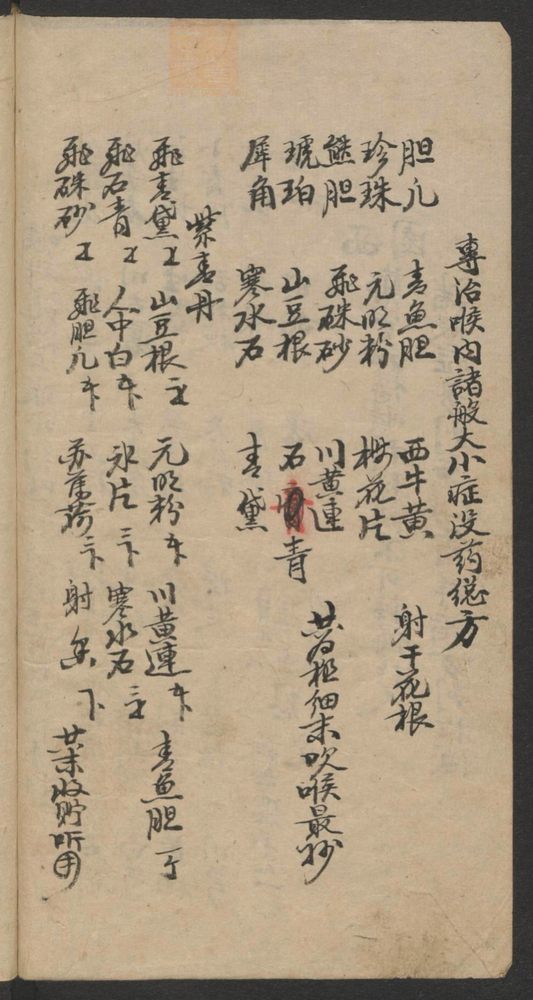 專治喉内諸般大小症没药總方
胆凡 青魚胆 西牛黄 射干花根
珍珠 元明粉 梅花片
熊胆 飛硃砂 川黄連 共為極细末吹喉最妙
琥珀 山豆根 石青
犀角 寒水石 青黛
紫青丹
飛青黛 山豆根 元明粉 川黄連 青魚胆
飛石青 人中白 氷片 寒水石
飛硃砂 飛胆凡 苏薄荷 射 共末收貯听用